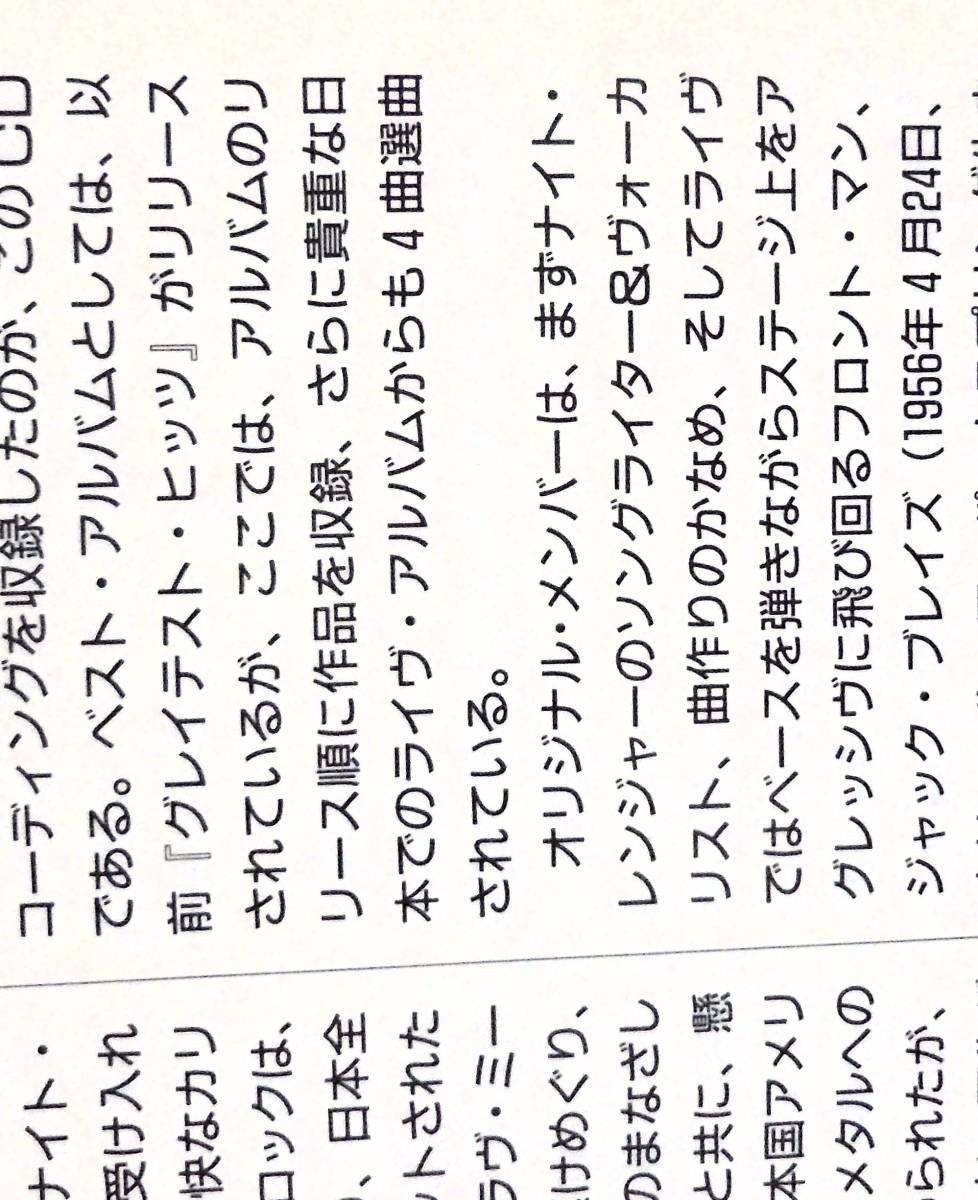 ナイト・
受け入れ
快なカリ
ロックは、
、日本全
ットされた
ラヴ・ミー
けめぐり、
のまなざし
と共に、懸
本国アメリ
メタルへの
られたが、
コーディングを収録したのが、このCD
である。ベスト・アルバムとしては、以
前『グレイテスト・ヒッツ』がリリース
されているが、ここでは、アルバムのリ
リース順に作品を収録、さらに貴重な日
本でのライヴ・アルバムからも4曲選曲
されている。
オリジナル・メンバーは、まずナイト・
レンジャーのソングライター&ヴォーカ
リスト、曲作りのかなめ、そしてライヴ
ではベースを弾きながらステージ上をア
グレッシヴに飛び回るフロント・マン、
ジャック・ブレイズ（1956年4月24日、